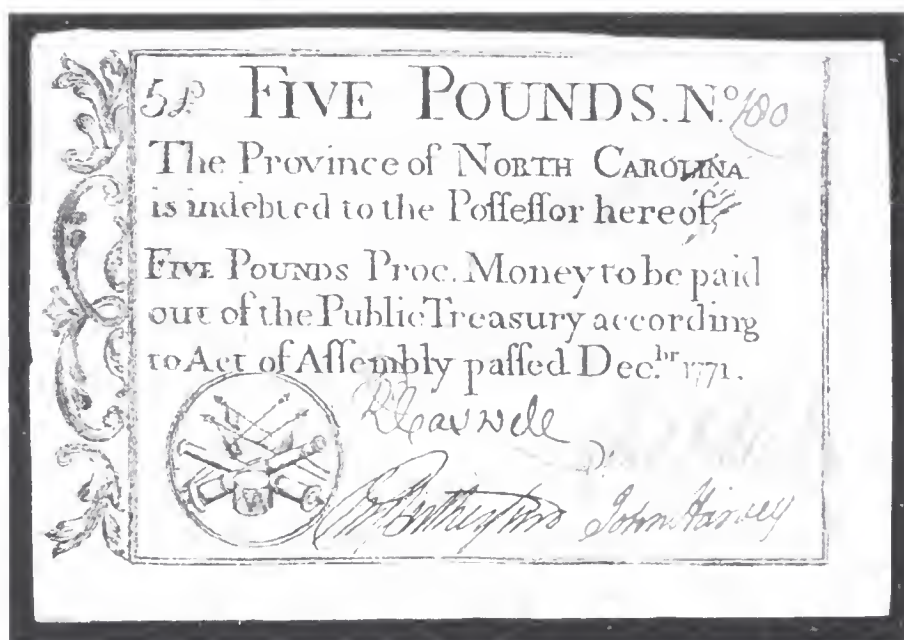 5£ FIVE POUNDS. N.º 180
The Province of NORTH CAROLINA
is indebted to the Poſſeſſor hereof
FIVE POUNDS Proc. Money to be paid
out of the Public Treasury according
to Act of Aſſembly paſſed Dec.br 1771.
Rutherfurd John Harvey